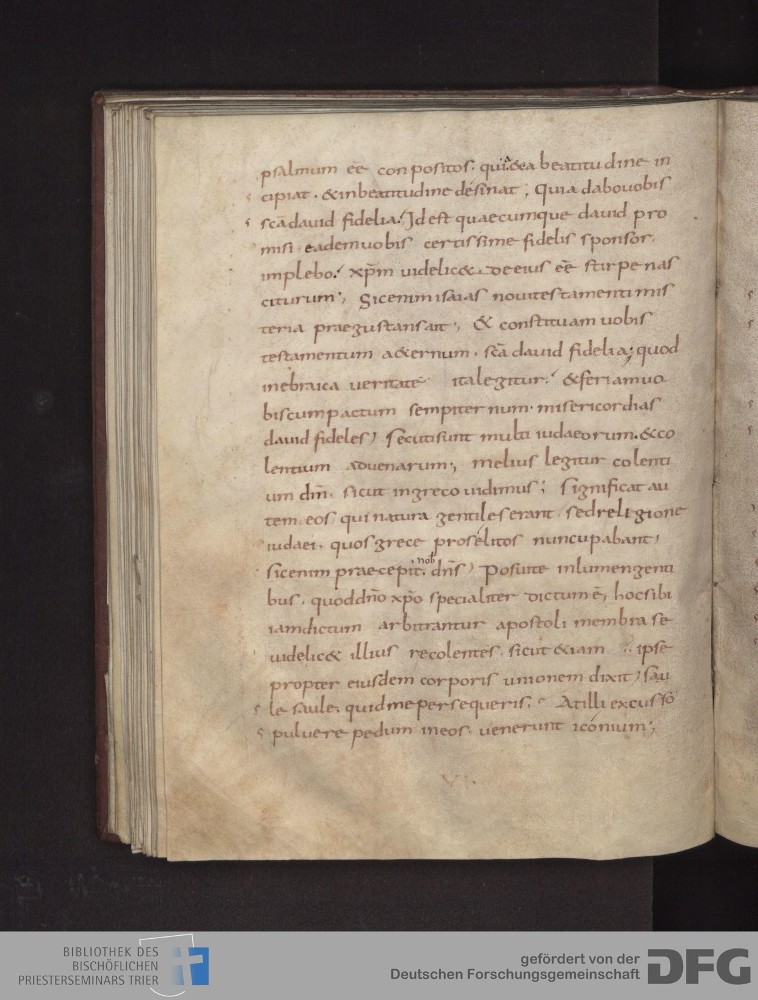 psalmum eē conpositos. qui &a beatitudine in
cipiat. & inbeatitudine desinat; Quia dabouobis
scā dauid fidelia; Id est quaecumque dauid pro
misi eademuobis certissime fidelis sponsor
implebo; xp̄m uidelic& deeius eē stirpe nas
citurum; Sicenim isaias nouitestamenti mis
teria praegustansait; & constituam uobis
testamentum a&ernum. scā dauid fidelia; quod
inebraica ueritate italegitur; & feriamuo
biscumpactum sempiternum. misericordias
dauid fideles; Secutisunt multi iudaeorum. & co
lentium aduenarum; melius legitur colenti
um dm̄. sicut ingreco uidimus; Significat au
tem eos qui natura gentiles erant. sedreligione
iudaei. quos grece proselitos nuncupabant;
sicenim praecepit nob dn̄s; Posuite inlumen genti
bus. quoddn̄o xp̄o specialiter dictum ē, hocsibi
iamdictum arbitrantur apostoli membra se
uidelic& illius recolentes. sicut &iam ipse
propter eiusdem corporis unionem dixit; sau
le saule. quid mepersequeris; At illi excusso
puluere pedum ineos. uenerunt iconium;
BIBLIOTHEK DES
BISCHÖFLICHEN
PRIESTERSEMINARS TRIER
gefördert von der
Deutschen Forschungsgemeinschaft
DFG